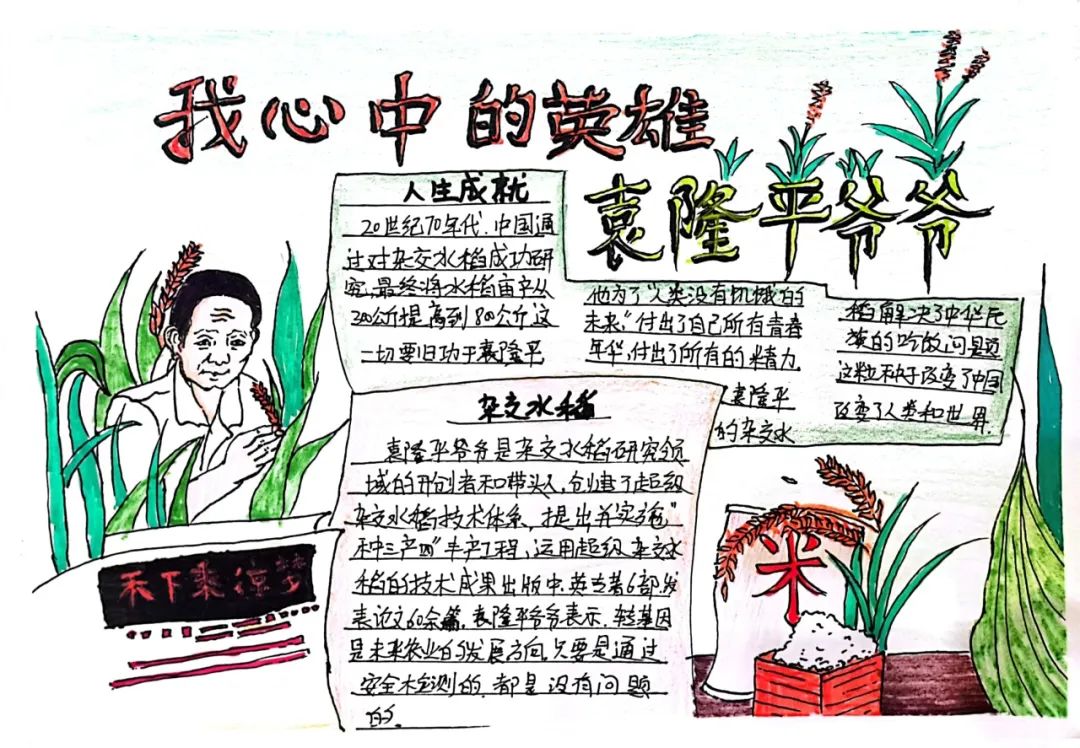 我心中的英雄
袁隆平爷爷
人生成就
20世纪70年代,中国通
过对杂交水稻成功研
究,最终将水稻亩产从
300公斤提高到800公斤这
一切要归功于袁隆平
他为了"人类没有饥饿的
未来,"付出了自己所有青春
年华,付出了所有的精力
袁隆平
的杂交水
稻解决了中华民
族的吃饭问题
这粒种子改变了中国
改变了人类和世界.
杂交水稻
袁隆平爷爷是杂交水稻研究领
域的开创者和带头人,创建了超级
杂交水稻技术体系,提出并实施"
种三产四"丰产工程,运用超级杂交水
稻的技术成果出版中.英专著6部,发
表论文60余篇.袁隆平爷爷表示,转基因
是未来农业的发展方向,只要是通过
安全检测的.都是没有问题
的.
禾下乘凉梦
米